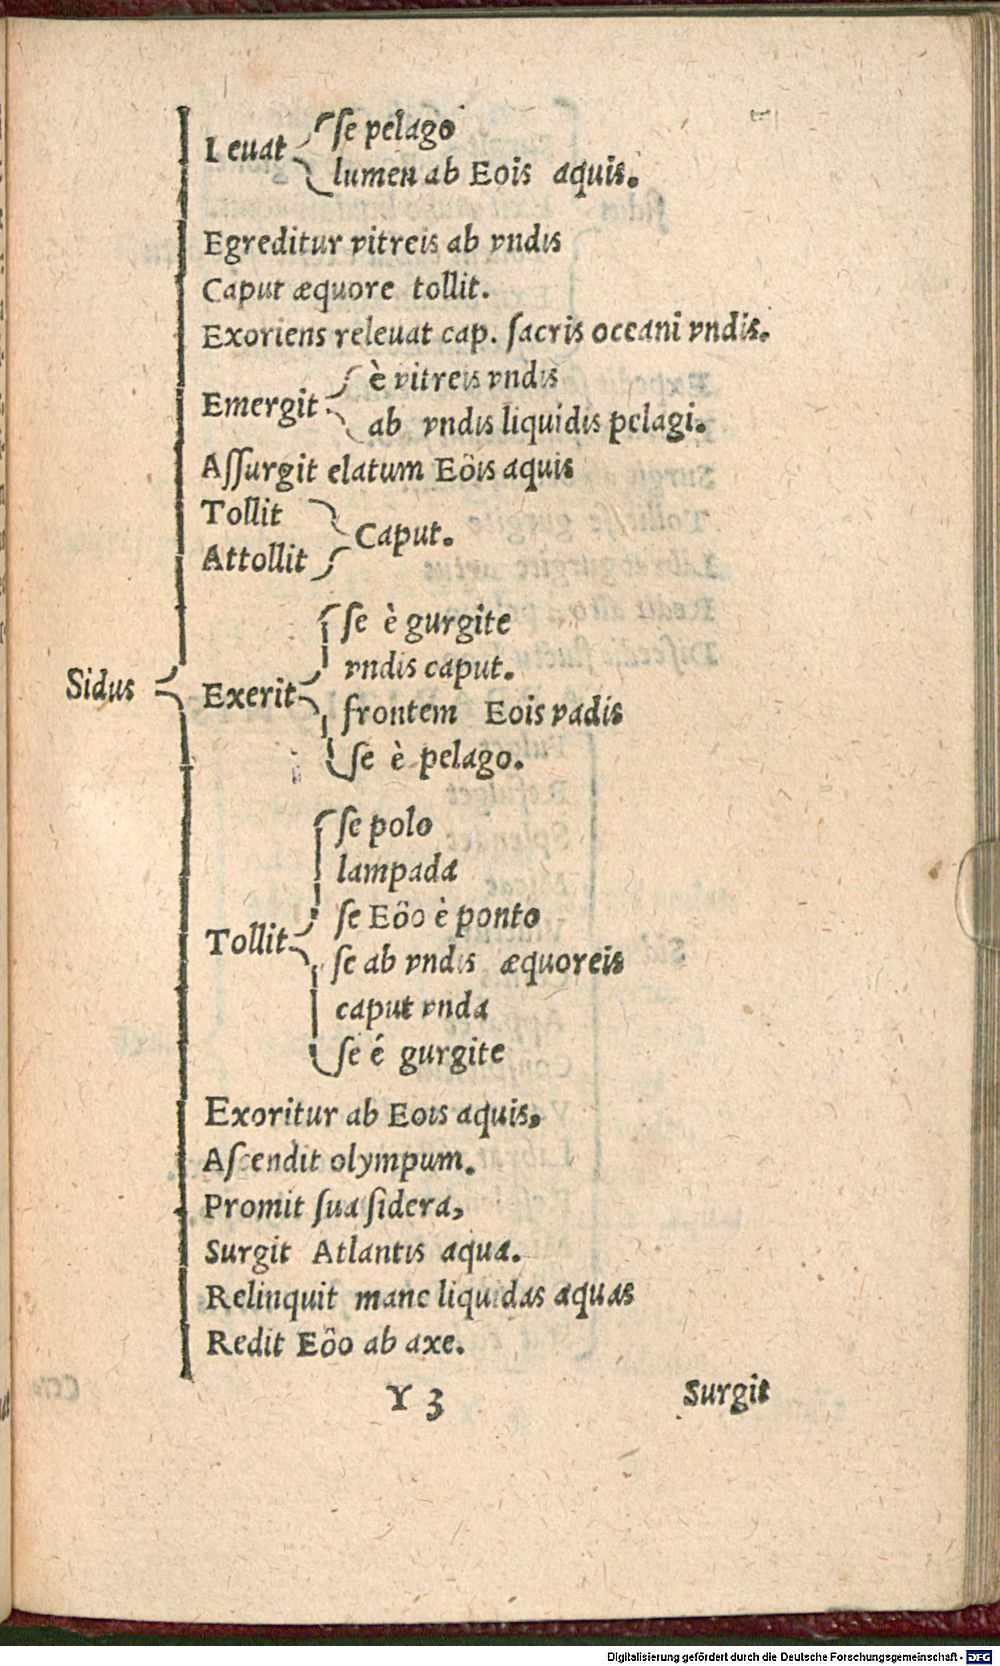 Leuat
ſe pelago
lumen ab Eois aquis.
Egreditur vitreis ab vndis
Caput æquore tollit.
Exoriens releuat cap. ſacris oceani vndis.
Emergit
è vitreis vndis
ab vndis liquidis pelagi.
Aſſurgit elatum Eôis aquis
Tollit
Attollit
Caput.
Sidus
Exerit
ſe è gurgite
vndis caput.
frontem Eois vadis
ſe è pelago.
Tollit
ſe polo
lampada
ſe Eôo è ponto
ſe ab vndis æquoreis
caput vnda
ſe é gurgite
Exoritur ab Eois aquis,
Aſcendit olympum.
Promit ſua ſidera,
Surgit Atlantis aqua.
Relinquit mane liquidas aquas
Redit Eôo ab axe.
Y 3
Surgit
Digitalisierung gefördert durch die Deutsche Forschungsgemeinschaft - DFG